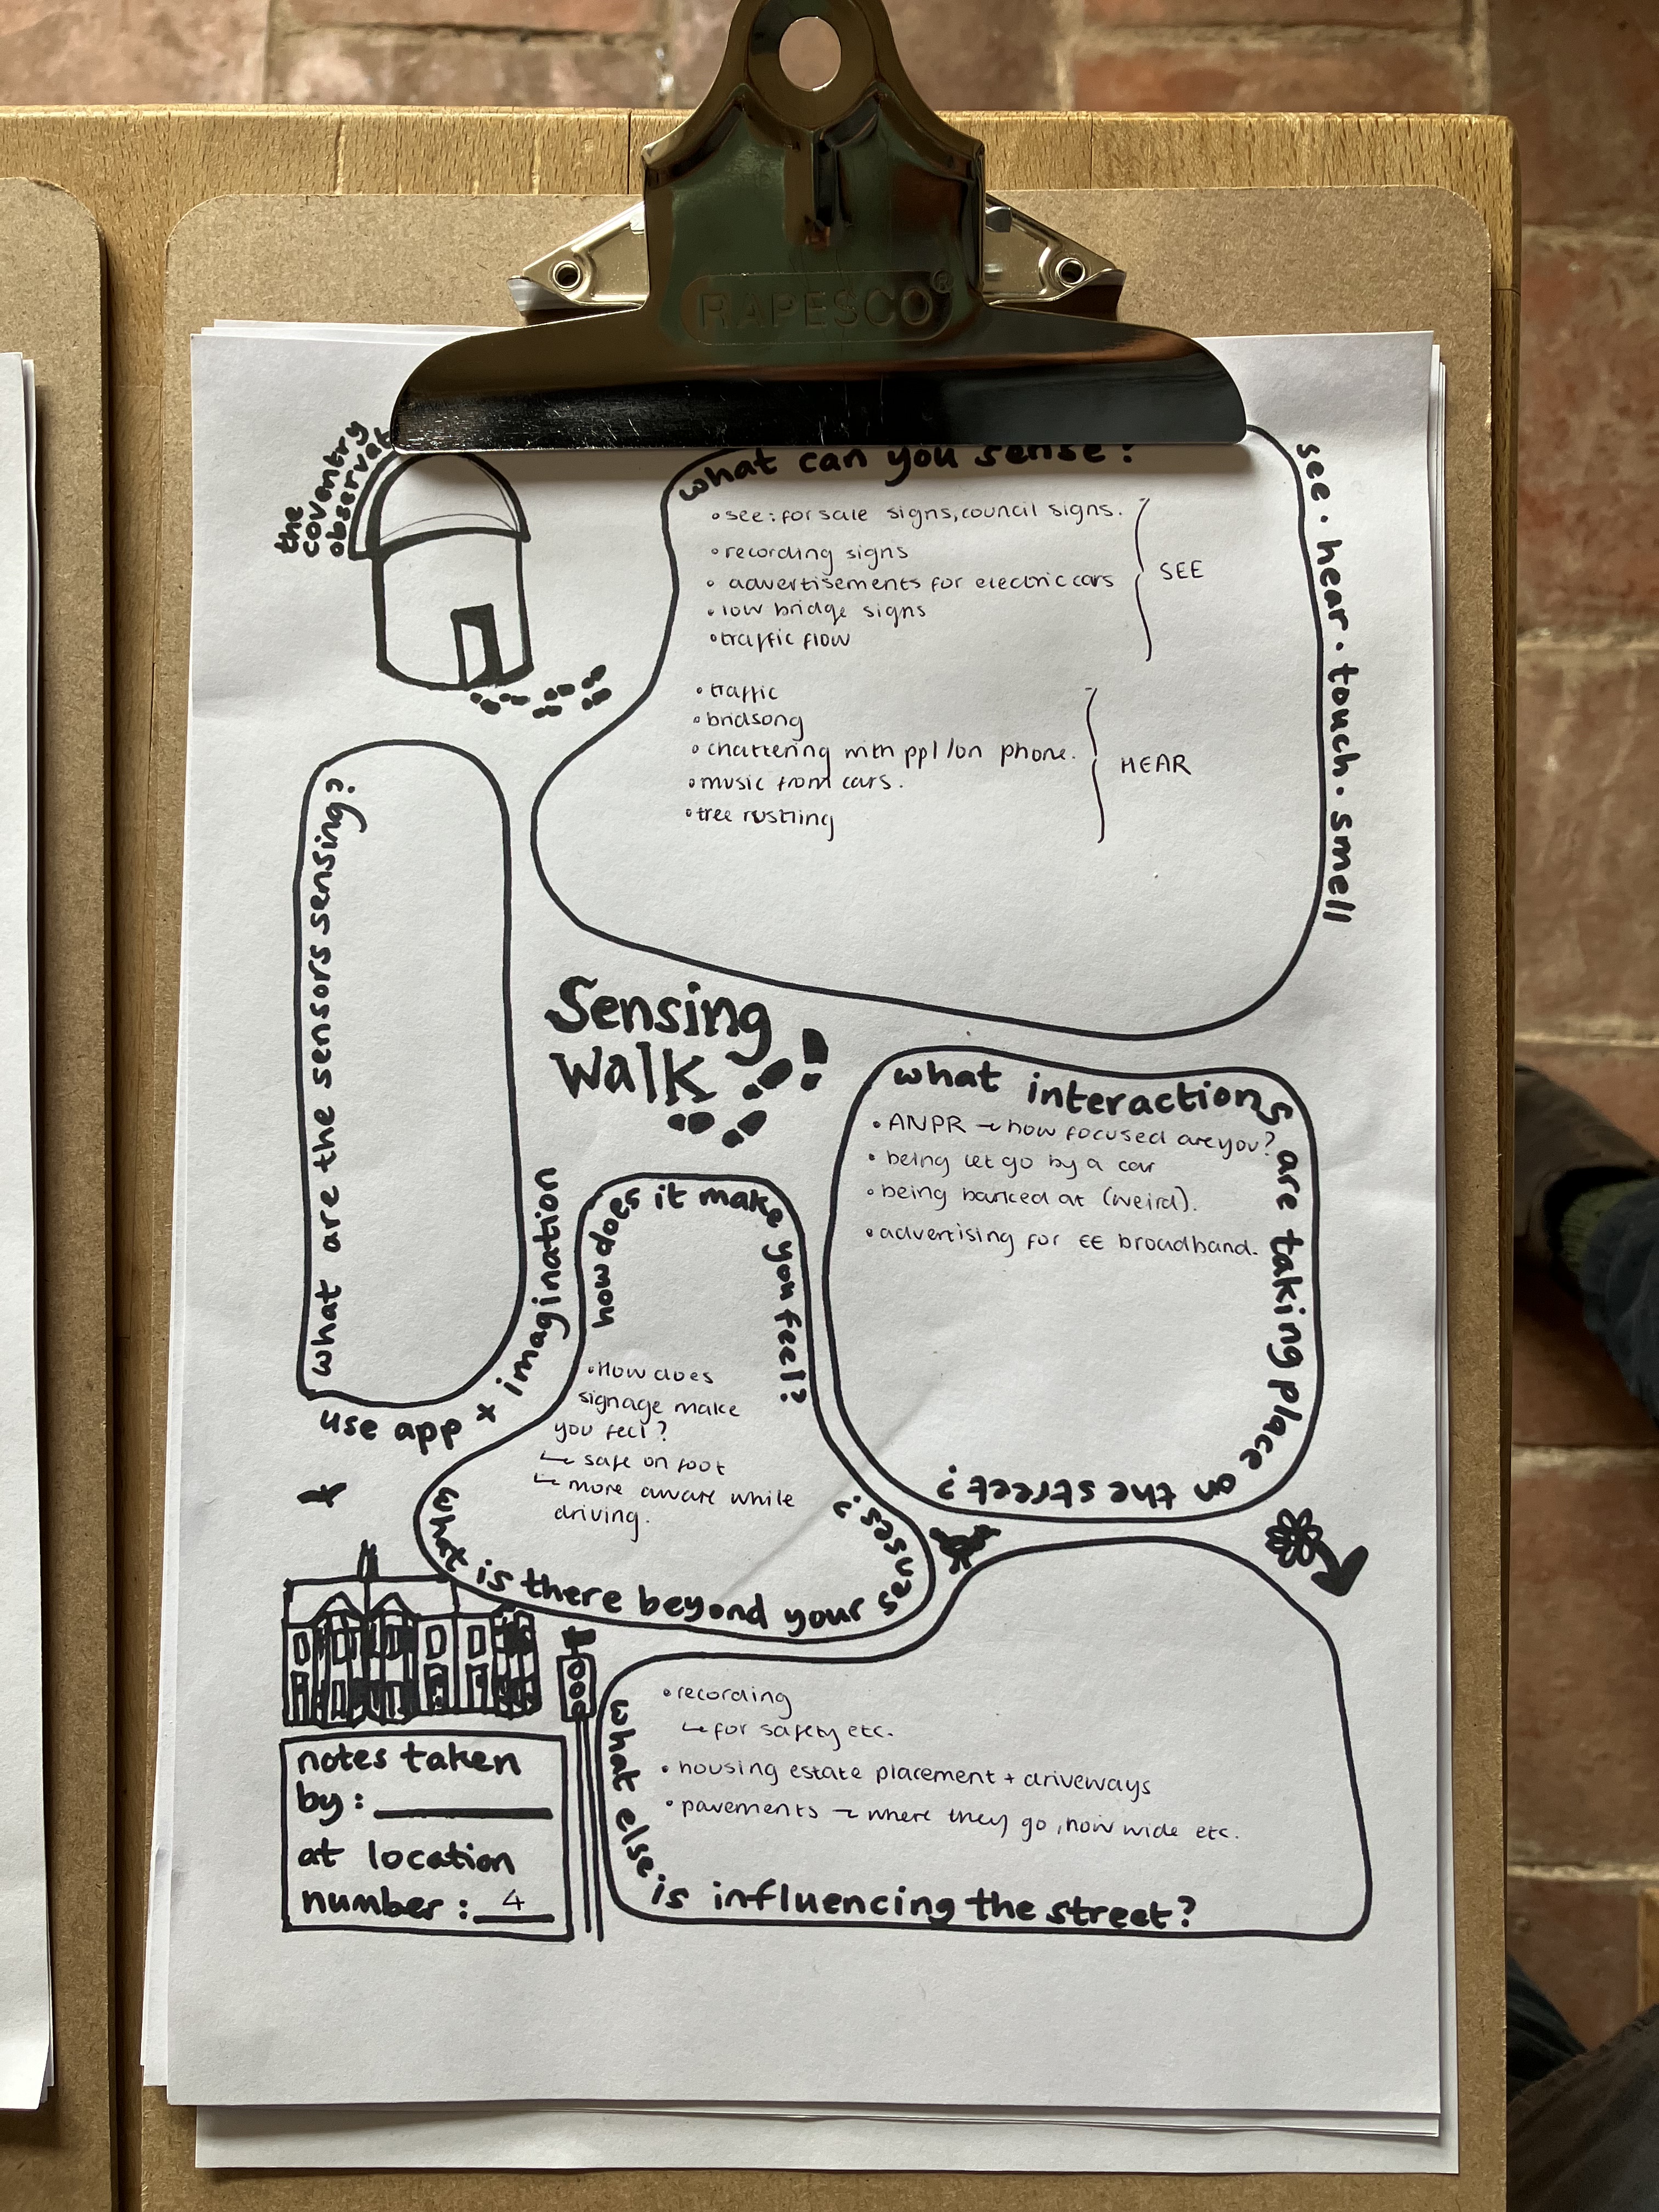 RAPESCO®
the
coventry
what can you sense?
see · hear · touch · smell
• see: for sale signs, council signs.
• recording signs
• advertisements for electric cars
• low bridge signs
• traffic flow
SEE
• traffic
• bridsong
• chattering with ppl /on phone.
• music from cars.
• tree rustling
HEAR
what are the sensors sensing?
use app x imagination
Sensing
Walk
what interactions are taking place on the street?
• ANPR → how focused are you?
• being let go by a car
• being barked at (weird).
• advertising for EE broadband.
how does it make you feel?
• How does
signage make
you feel?
↳ safe on foot
↳ more aware while
driving.
what is there beyond your senses?
• recording
↳ for safety etc.
• housing estate placement + driveways
• pavements → where they go, how wide etc.
what else is influencing the street?
notes taken
by:
at location
number: 4